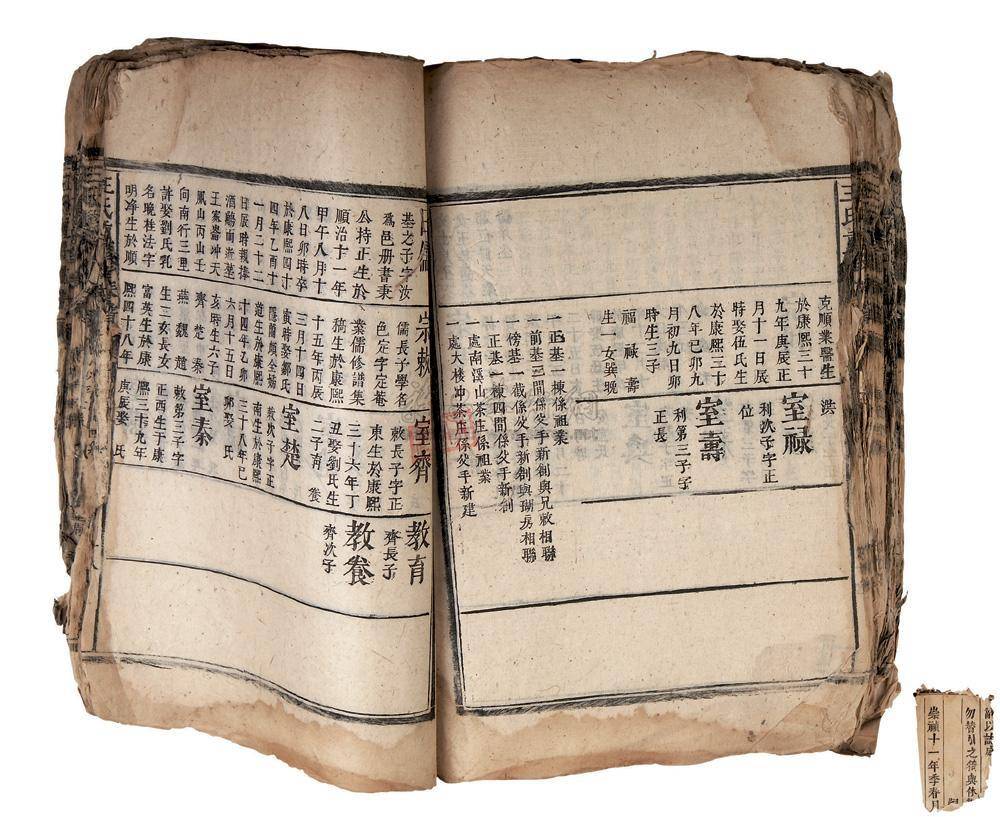 王氏
克順業醫生
於康熙三十
九年庚辰正
月十一日辰
特娶伍氏生
於康熙三十
八年己卯九
月初九日卯
時生三子
福 祿 壽
生一女巽晚
洪
室祿
利次子字正
位
室壽
利第三子字
正長
一正基一棟係祖業
一前基三間係父手新創與兄敕相聯
一傍基一截係父手新創與瑚房相聯
一正基一棟四間係父手新創
一處南溪山茶庄係祖業
一處大棧冲茶庄係父手新建
基之子字汝
爲邑册書秉
公持正生於
順治十一年
甲午八月十
八日卯時卒
於康熙四十
四年乙酉十
一月二十二
日辰時
王家壟冲天
鳳山丙山壬
向南行三里
許娶劉氏乳
名晚桂法字
明净生於順
宗敕
儒長子學名
色定字定菴
業儒修譜集
稿生於康熙
十五年丙辰
三月十四日
寅時娶鄒氏
道生於康熙
十四年乙卯
六月十五日
亥時生六子
齊 楚 秦
燕 魏 趙
生二女長女
富英生於康
熙四十八年
室齊
敕長子字正
東生於康熙
三十六年丁
丑娶劉氏生
二子育 養
室楚
敕次子字正
南生於康熙
三十八年己
卯娶 氏
室秦
敕第三子字
正西生于康
熙三十九年
庚辰娶 氏
教育
齊長子
教養
齊次子
王氏
勿替引之猗與休
崇禎十一年季春月